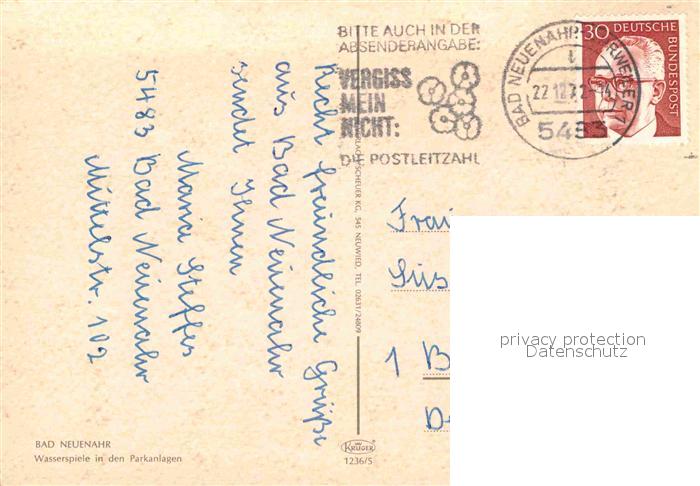 BITTE AUCH IN DER
ABSENDERANGABE:
VERGISS
MEIN
NICHT:
DIE POSTLEITZAHL
BAD NEUENAHR-AHRWEILER 1
22.12.72-14
5483
30 DEUTSCHE
BUNDESPOST
Recht freundliche Grüße
aus Bad Neuenahr
sendet Ihnen
Maria Steffes
5483 Bad Neuenahr
Mittelstr. 102
SCHEUER KG, 545 NEUWIED, TEL. 02631/24809
1 B
privacy protection
Datenschutz
BAD NEUENAHR
Wasserspiele in den Parkanlagen
KRÜGER
1236/5